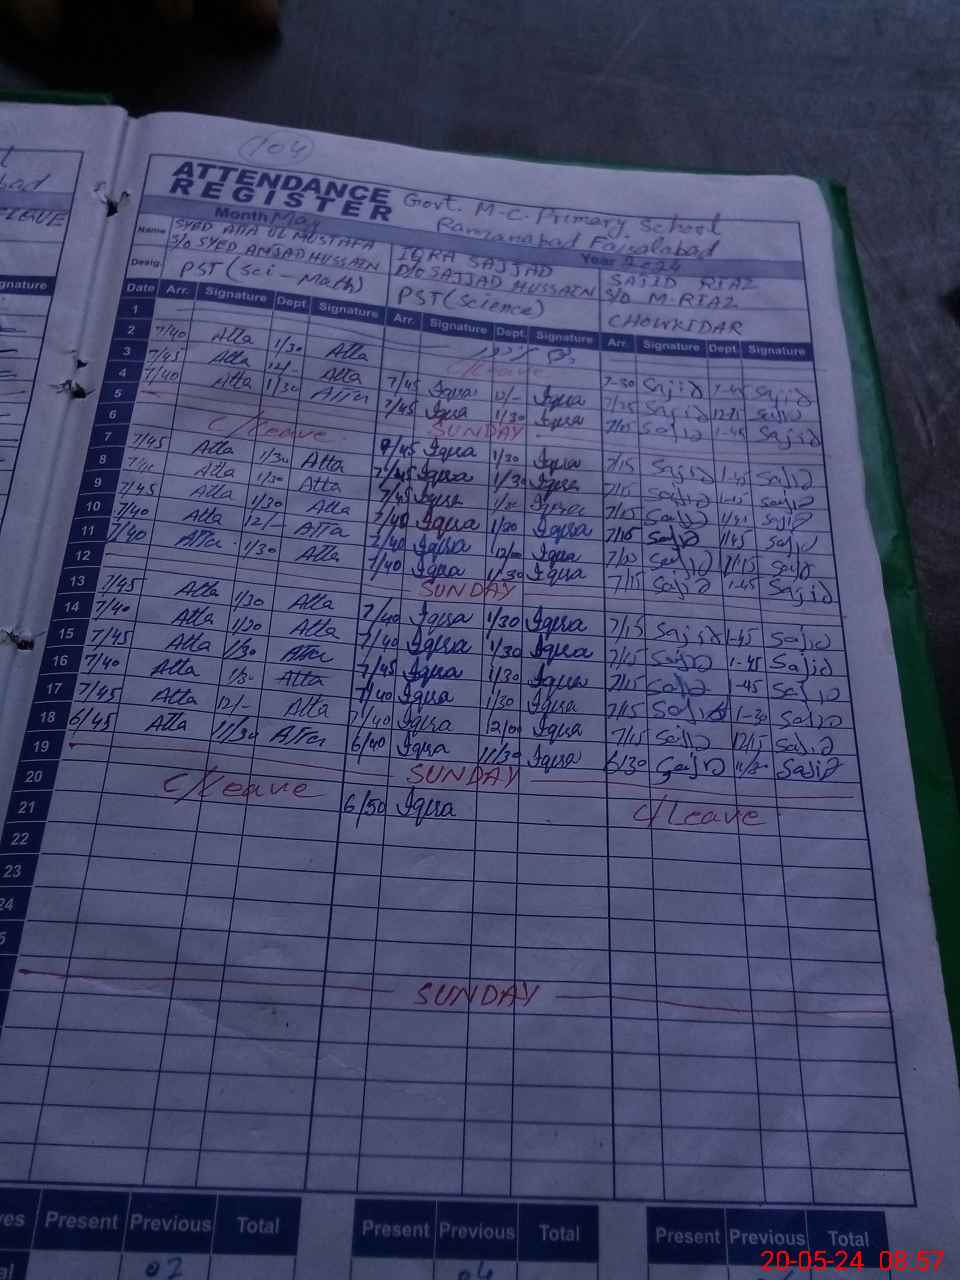 104
ATTENDANCE REGISTER
Govt. M.C. Primary School
Ramzanabad Faisalabad
Month May Year 2024
Name SYED ATTA UL MUSTAFA IQRA SAJJAD SAJID RIAZ
S/O SYED AMJAD HUSSAIN D/O SAJJAD HUSSAIN S/O M.RIAZ
Desig. PST (Sci-Math) PST (Science) CHOWKIDAR
Date Arr. Signature Dept. Signature Arr. Signature Dept. Signature Arr. Signature Dept. Signature
1
2 7/40 Atta 1/30 Atta C/Leave 7-30 Sajid 1-45 Sajid
3 7/45 Atta 12/- Atta 7/45 Iqra 12/- Iqra Sajid Sajid
4 7/40 Atta 1/30 Atta 7/45 Iqra 1/30 Iqra 7/15 Sajid 1-45 Sajid
5 SUNDAY
6 C/Leave 7/45 Iqra 1/30 Iqra 7/15 Sajid 1-45 Sajid
7 7/45 Atta 1/30 Atta 7/45 Iqra 1/30 Iqra 7/15 Sajid Sajid
8 Atta 1/30 Atta 7/45 Iqra Iqra 7/15 Sajid 1/45 Sajid
9 7/45 Atta 1/30 Atta 7/40 Iqra 1/30 Iqra 7/15 Sajid 1/45 Sajid
10 7/40 Atta 12/- Atta 7/40 Iqra 12/00 Iqra Sajid Sajid
11 7/40 Atta 1/30 Atta 7/40 Iqra 1/30 Iqra 7/15 Sajid 1-45 Sajid
12 SUNDAY
13 7/45 Atta 1/30 Atta 7/40 Iqra 1/30 Iqra 7/15 Sajid 1-45 Sajid
14 7/40 Atta 1/30 Atta 7/40 Iqra 1/30 Iqra 7/15 Sajid 1-45 Sajid
15 7/45 Atta 1/30 Atta 7/45 Iqra 1/30 Iqra 7/15 Sajid 1-45 Sajid
16 7/40 Atta 1/30 Atta 7/40 Iqra 1/30 Iqra 7/15 Sajid 1-30 Sajid
17 7/45 Atta 12/- Atta 7/40 Iqra 12/00 Iqra 7/15 Sajid 12/15 Sajid
18 6/45 Atta 11/30 Atta 6/40 Iqra 11/30 Iqra 6/30 Sajid Sajid
19 SUNDAY
20 C/Leave 6/50 Iqra C/Leave
21
22
23
24
SUNDAY
Present Previous Total Present Previous Total Present Previous Total
02 04
20-05-24 08:57